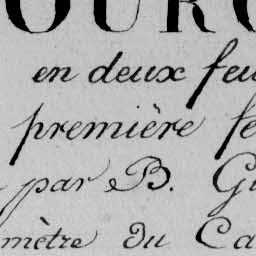 OURG
en deux feu
première fe
par B. Gu
mètre du Ca